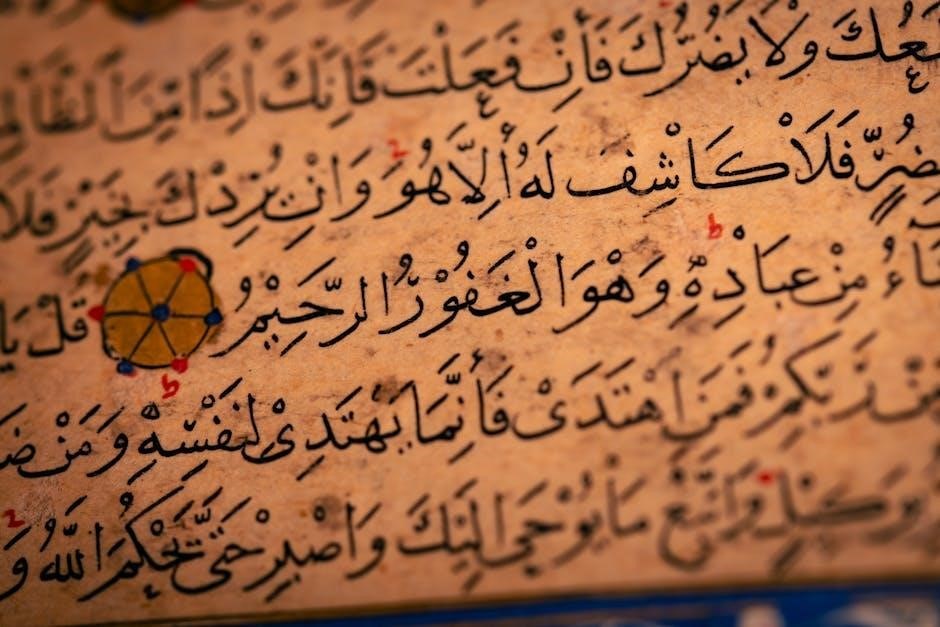 ـعُكَ وَلَا يَضُرُّكَ فَاِنْ فَعَلْتَ فَاِنَّكَ اِذًا مِنَ الظَّالِمـ
بِضُرٍّ فَلَا كَاشِفَ لَهُ اِلَّا هُوَ وَاِنْ يُرِدْكَ بِخَيْرٍ فَلَا
ـاءُ مِنْ عِبَادِهِ وَهْوَ الْغَفُوْرُ الرَّحِيْمُ قُلْ يَا
مِنْ رَبِّكُمْ فَمَنِ اهْتَدَىْ فَاِنَّمَا يَهْتَدِىْ لِنَفْسِهِ وَمَنْ ضَـ
بِوَكِيْلٍ وَاتَّبِعْ مَا يُوْحَى اِلَيْكَ وَاصْبِرْ حَتَّى يَحْكُمَ اللّٰهُ وَ